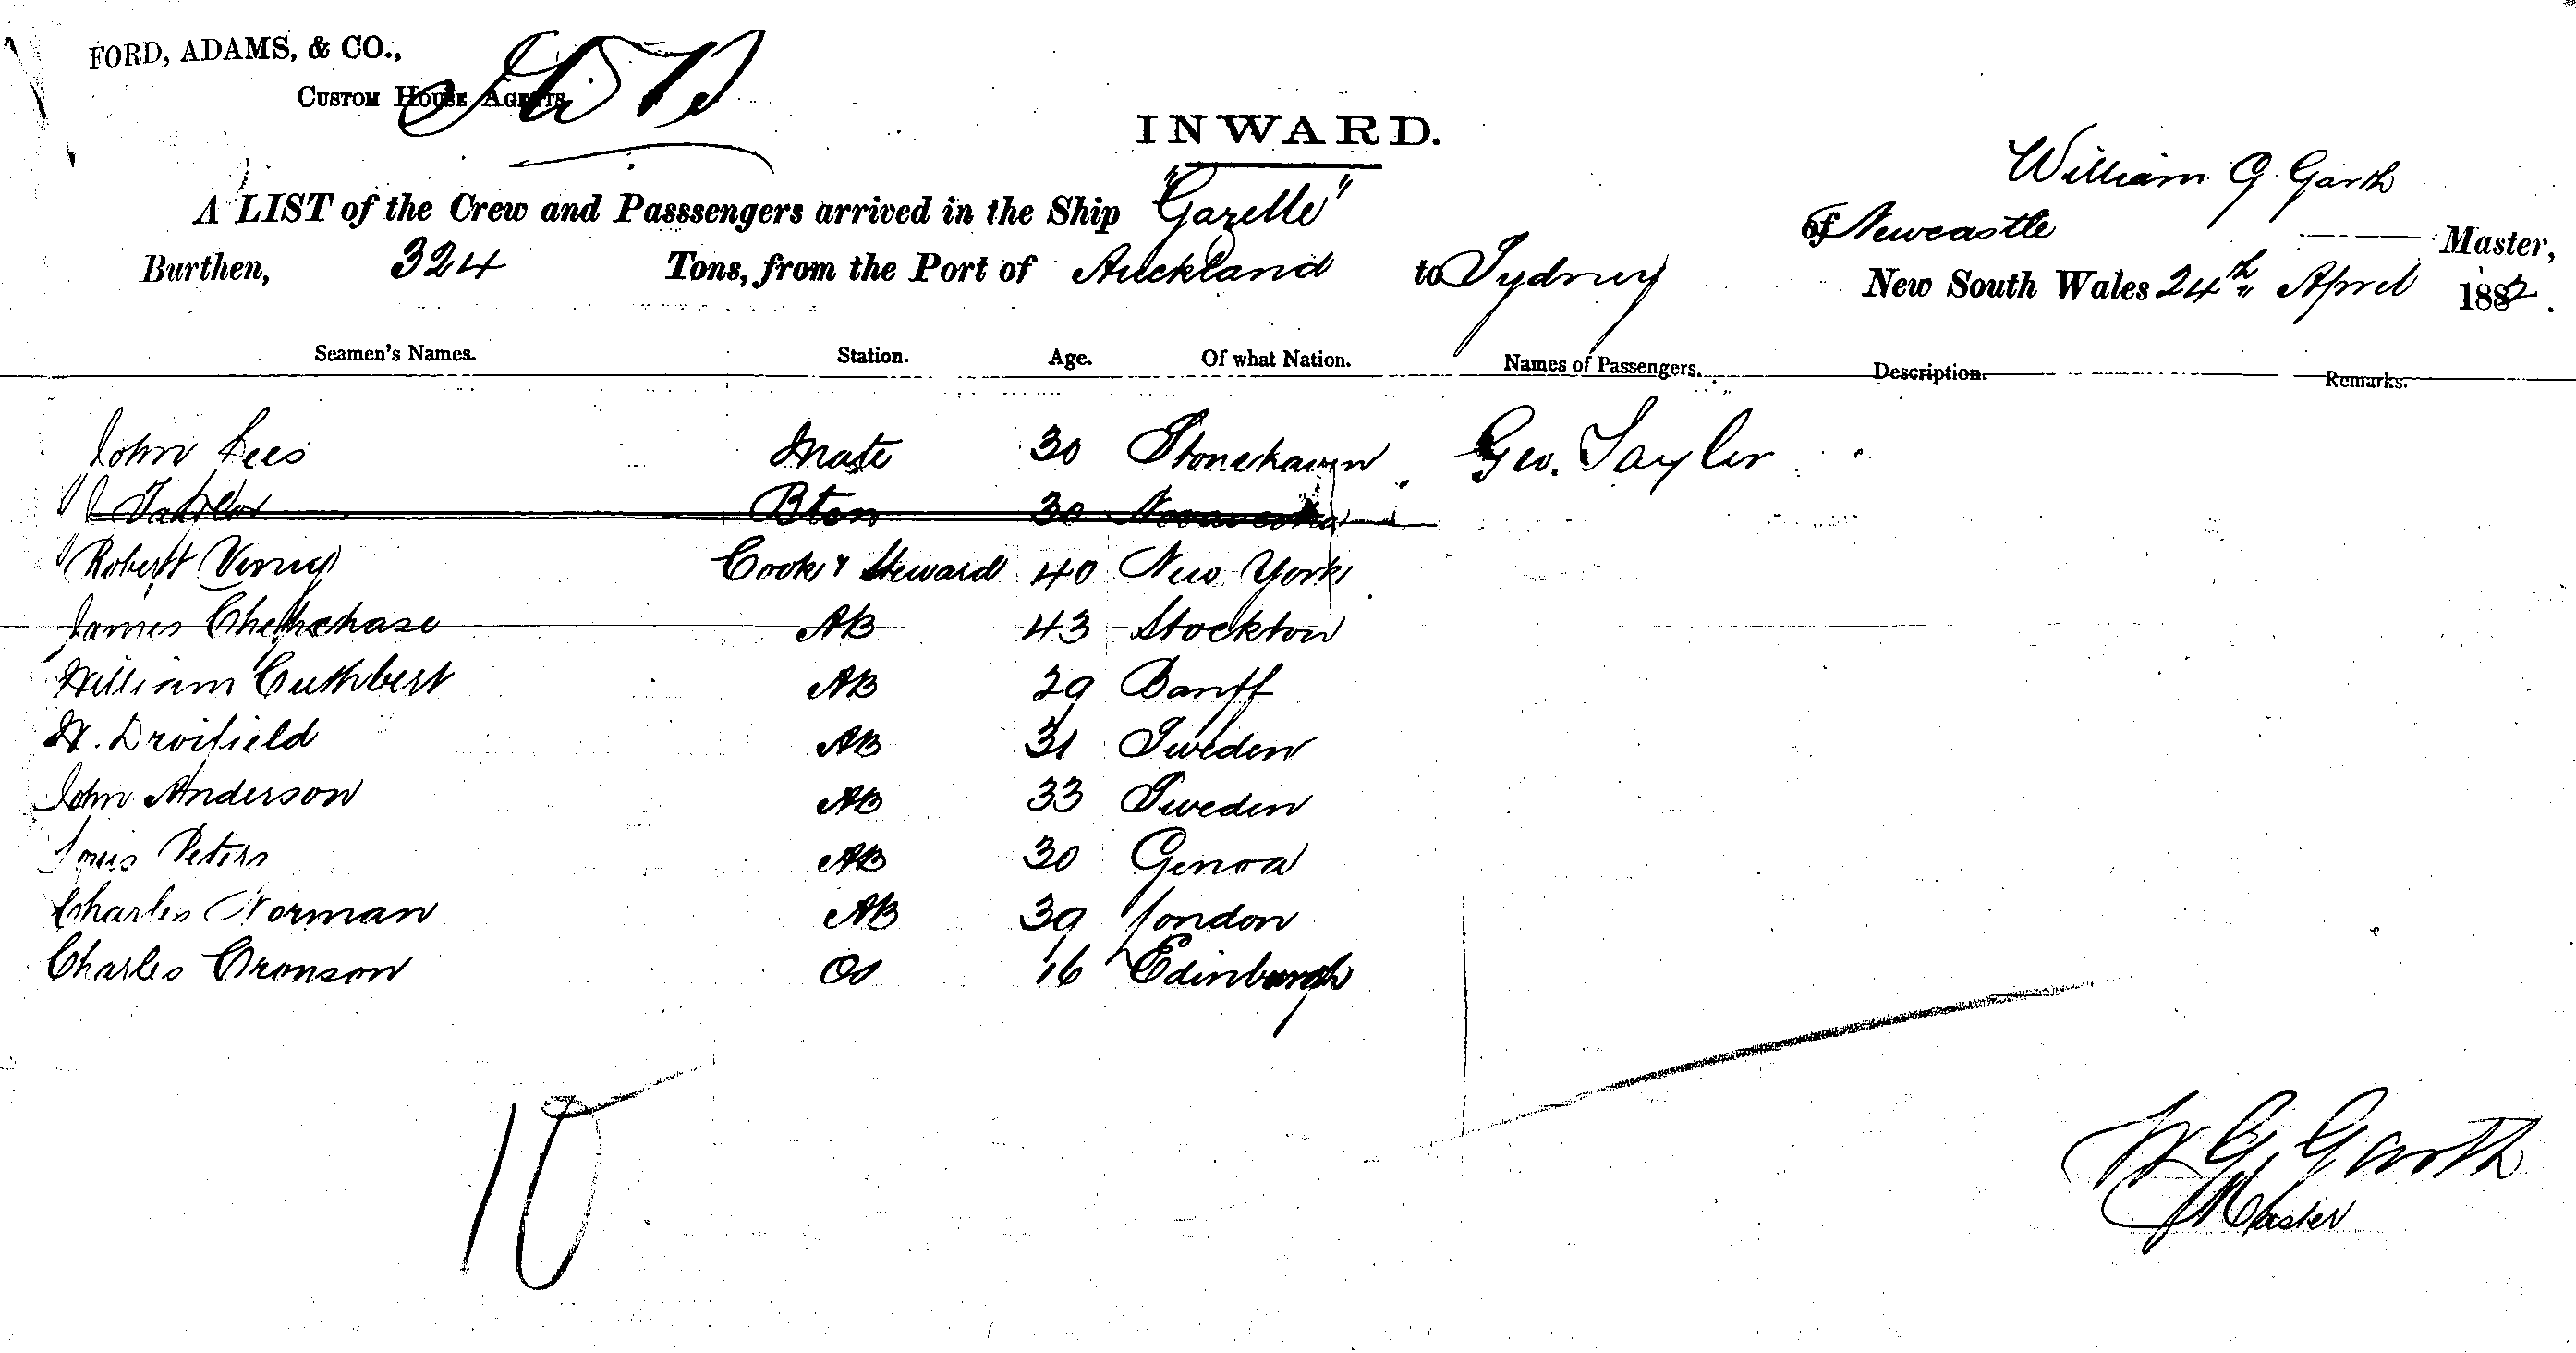 FORD, ADAMS, & CO.,
CUSTOM HOUSE AGENTS
INWARD.
William G. Garth
A LIST of the Crew and Passsengers arrived in the Ship "Gazelle" of Newcastle Master,
Burthen, 324 Tons, from the Port of Auckland to Sydney New South Wales 24th April 1882.
Seamen's Names. Station. Age. Of what Nation. Names of Passengers. Description. Remarks.
John Lees Mate 30 Stonehaven Geo. Taylor
Bton 30
Robert Cook & Steward 40 New York
James AB 43 Stockton
William Cuthbert AB 29 Banff
Droifield AB 31 Sweden
John Anderson AB 33 Sweden
Louis Peters AB 30 Genoa
Charles Norman AB 39 London
Charles Cronson OS 16 Edinburgh
10
W G Garth
Master